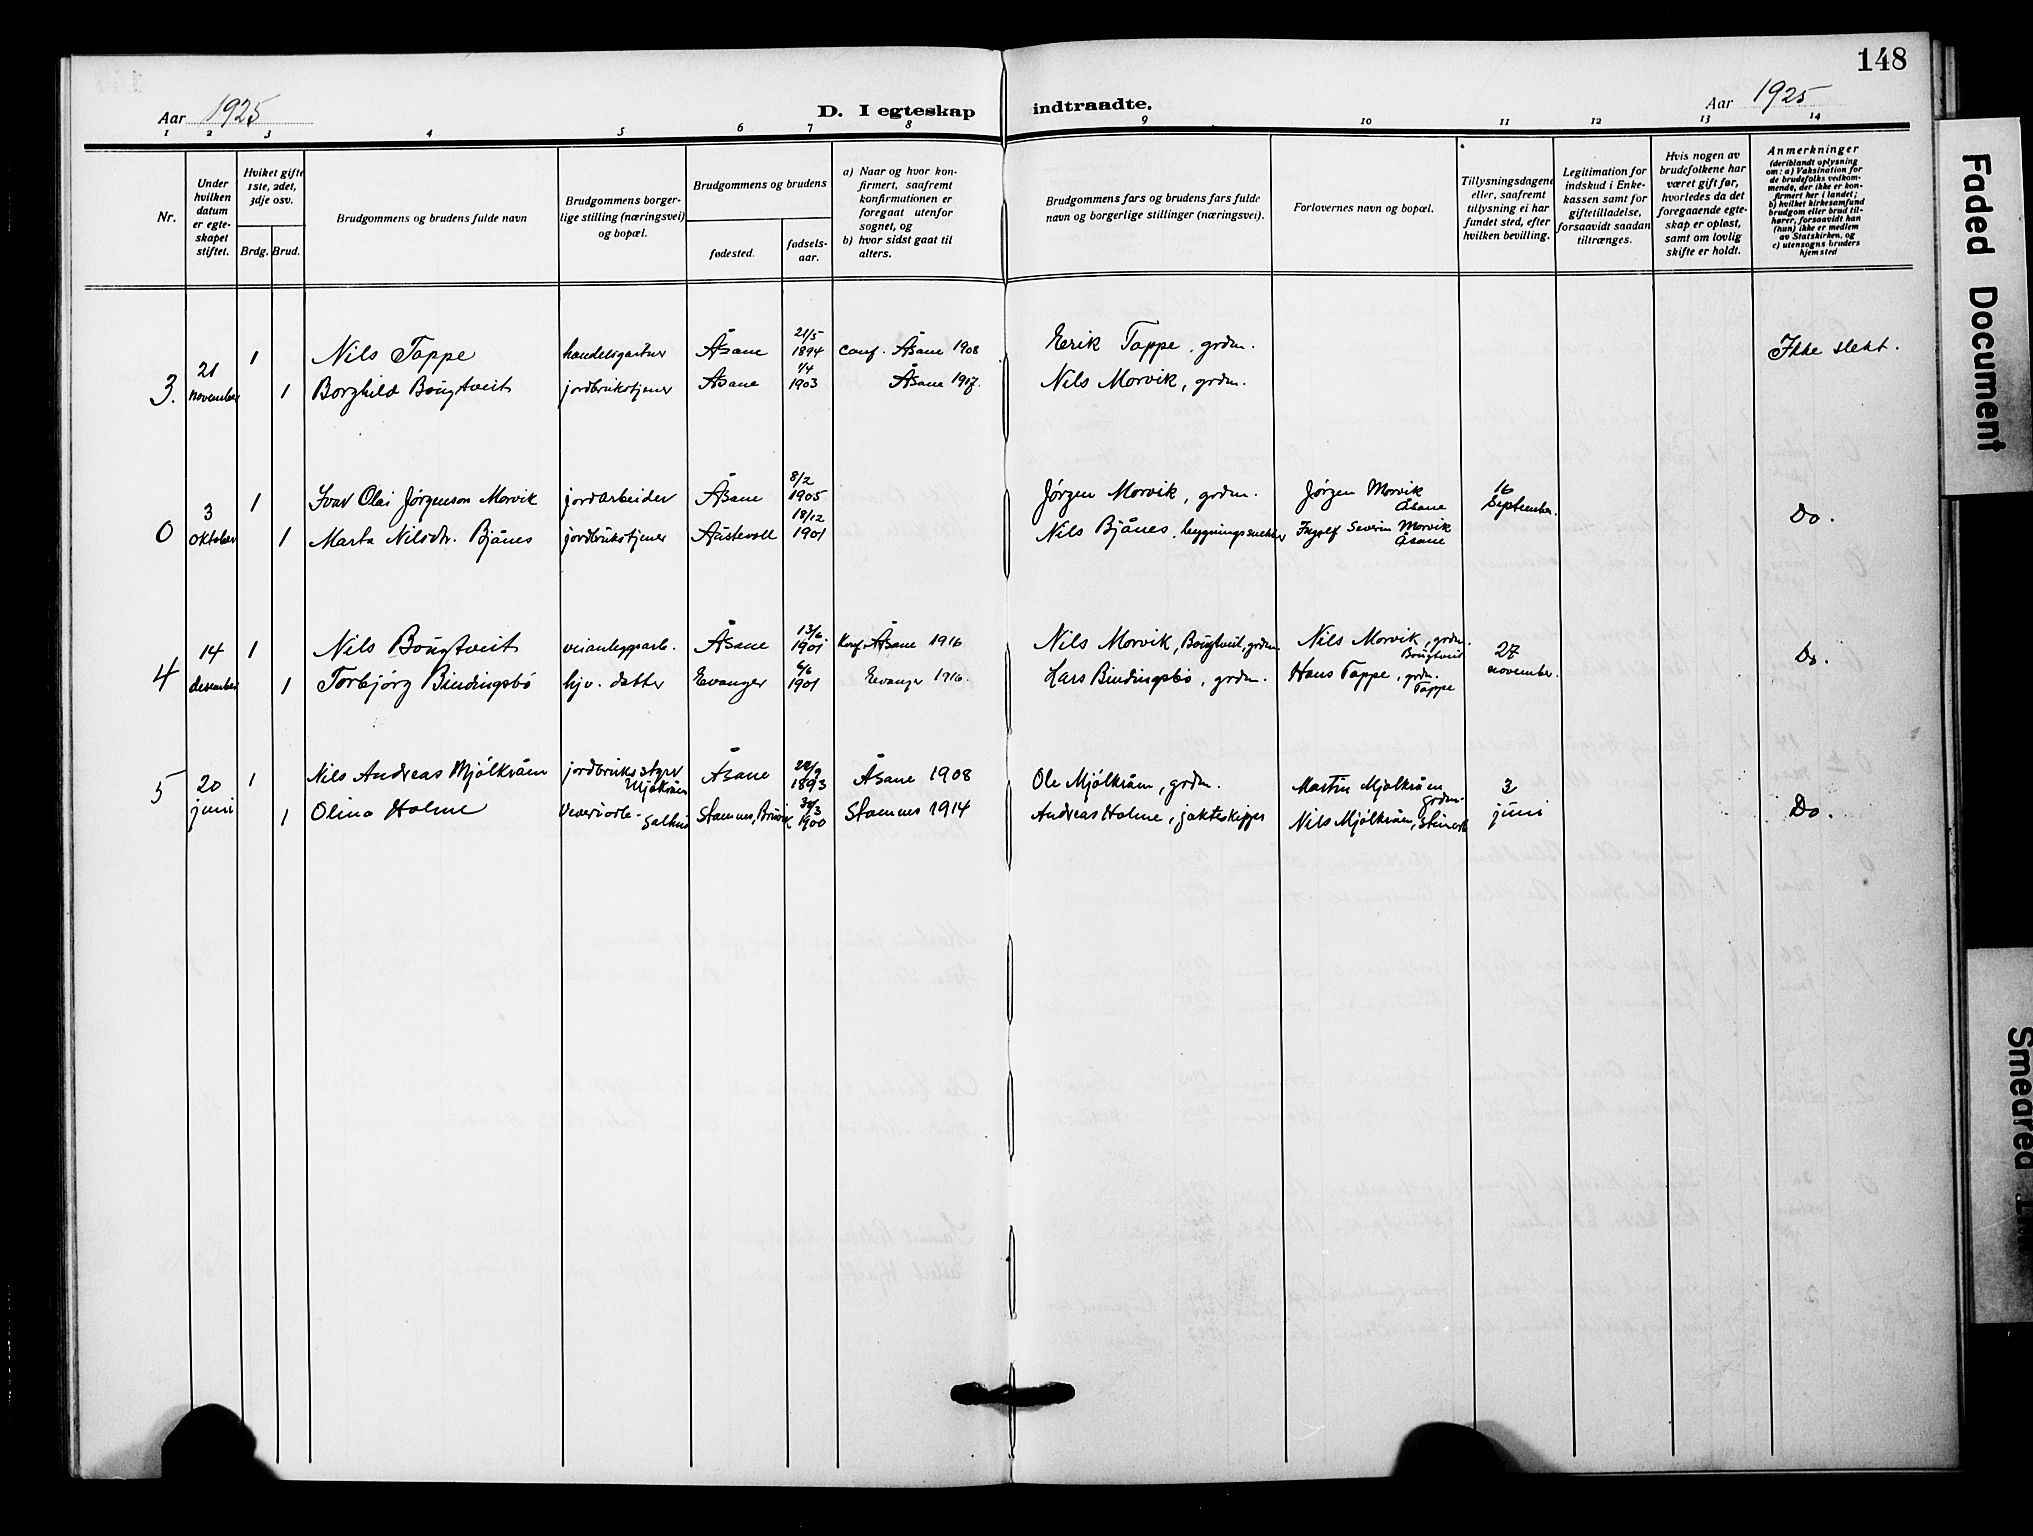 148
Aar 1925
D. I egteskap indtraadte.
Aar 1925
1 2 3 4 5 6 7 8 9 10 11 12 13 14
Nr.
Under hvilken datum er egteskapet stiftet.
Hviket gifte 1ste, 2det, 3dje osv.
Brdg. Brud.
Brudgommens og brudens fulde navn
Brudgommens borgerlige stilling (næringsvei) og bopæl.
Brudgommens og brudens
fødested.
fødselsaar.
a) Naar og hvor konfirmert, saafremt konfirmationen er foregaat utenfor sognet, og
b) hvor sidst gaat til alters.
Brudgommens fars og brudens fars fulde navn og borgerlige stillinger (næringsvei).
Forlovernes navn og bopæl.
Tillysningsdagene eller, saafremt tillysning ei har fundet sted, efter hvilken bevilling.
Legitimation for indskud i Enkekassen samt for giftetilladelse, forsaavidt saadan tiltrænges.
Hvis nogen av brudefolkene har været gift før, hvorledes da det foregaaende egteskap er opløst, samt om lovlig skifte er holdt.
Anmerkninger
(deriblandt oplysning om: a) Vaksination for de brudefolks vedkommende, der ikke er konfirmert her i landet; b) hvilket kirkesamfund brudgom eller brud tilhører, forsaavidt han (hun) ikke er medlem av Statskirken, og c) utensogns bruders hjemsted
3. 21 november 1 Nils Tappe handelsgartner Åsane 21/5 1894 Conf. Åsane 1908 Erik Tappe, grdm. Ikke slekt.
1 Borghild Bougtveit jordbrukstjener Åsane 1/4 1903 Åsane 1917. Nils Morvik, grdm.
0 3 oktober 1 Ivar Olai Jørgenson Morvik jordarbeider Åsane 8/2 1905 Jørgen Morvik, grdm. Jørgen Morvik Åsane 16 September. Do.
1 Marta Nilsdtr. Bjånes jordbrukstjener Austevoll 18/12 1901 Nils Bjånes, bygningssnekker Ingolf Severin Morvik Åsane
4 14 desember 1 Nils Bougtveit veianleggsarb. Åsane 13/6 1901 Konf. Åsane 1916 Nils Morvik, Bougtveit, grdm. Nils Morvik, grdm. Bougtveit 27 november. Do.
1 Torbjørg Bindingsbø hjv. datter Evanger 6/6 1901 Evanger 1916. Lars Bindingsbø, grdm. Hans Tappe, grdm. Tappe
5 20 juni 1 Nils Andreas Mjølkråen jordbruks styrer Mjølkråen Åsane 1893 Åsane 1908 Ole Mjølkråen, grdm. Martin Mjølkråen grdm. 3 juni Do.
1 Olina Holme Salhus Stamnes, 1900 Stamnes 1914 Andreas Holme, jakteskipper Nils Mjølkråen,
Faded Document
Smeared